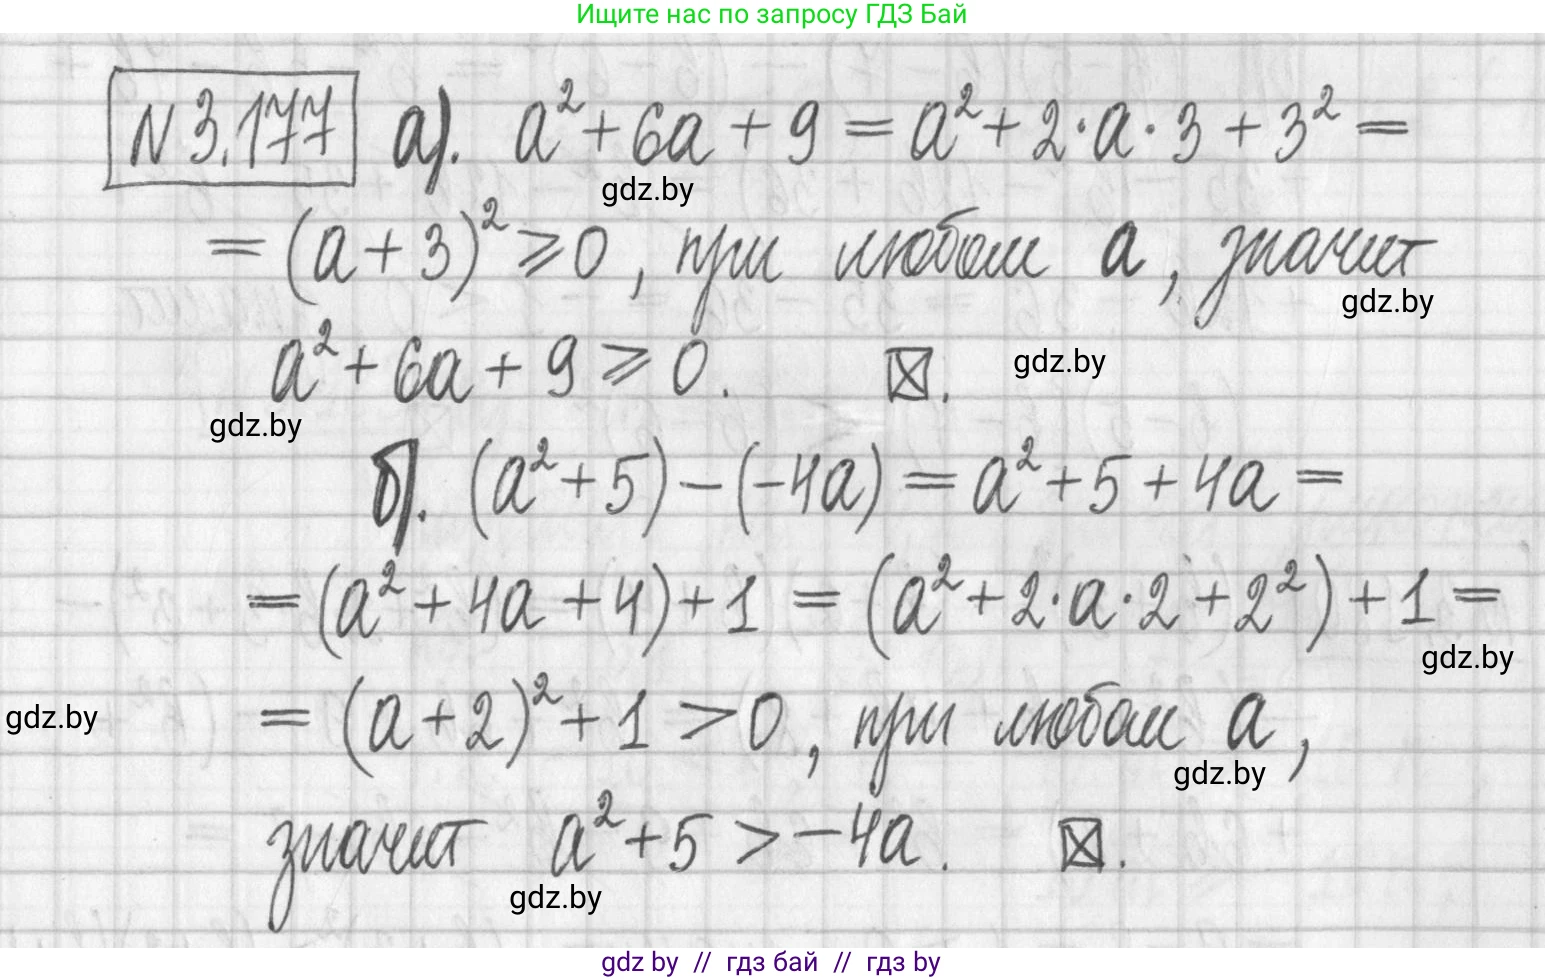 Ищите нас по запросу ГДЗ Бай
N 3.177 а). a² + 6a + 9 = a² + 2·a·3 + 3² =
gdz.by
= (a + 3)² ⩾ 0, при любом a, значит
gdz.by
a² + 6a + 9 ⩾ 0. ☒.
gdz.by
gdz.by
б). (a² + 5) – (–4a) = a² + 5 + 4a =
= (a² + 4a + 4) + 1 = (a² + 2·a·2 + 2²) + 1 =
gdz.by
= (a + 2)² + 1 > 0, при любом a,
gdz.by
gdz.by
значит a² + 5 > –4a. ☒.
gdz.by
gdz by // гдз бай // гдз by